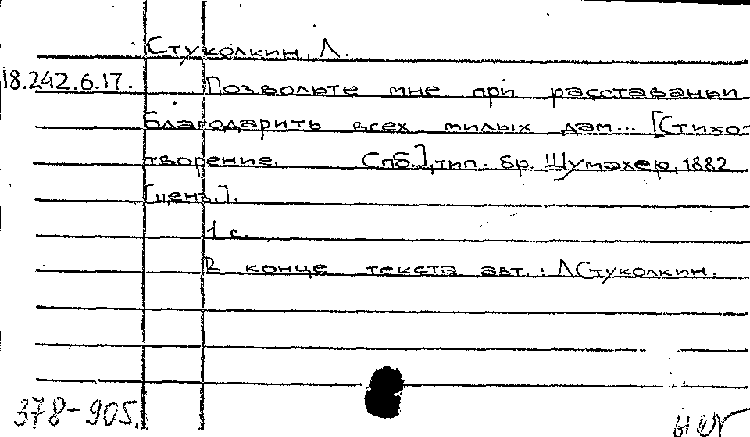 Стуколкин, Л.
18.242.6.17. Позвольте мне при расставаньи
благодарить всех милых дам... [Стихо-
творение. Спб.], тип. бр. Шумахер, 1882
[ценз.].
1 с.
В конце текста авт.: Л Стуколкин.
378-905.